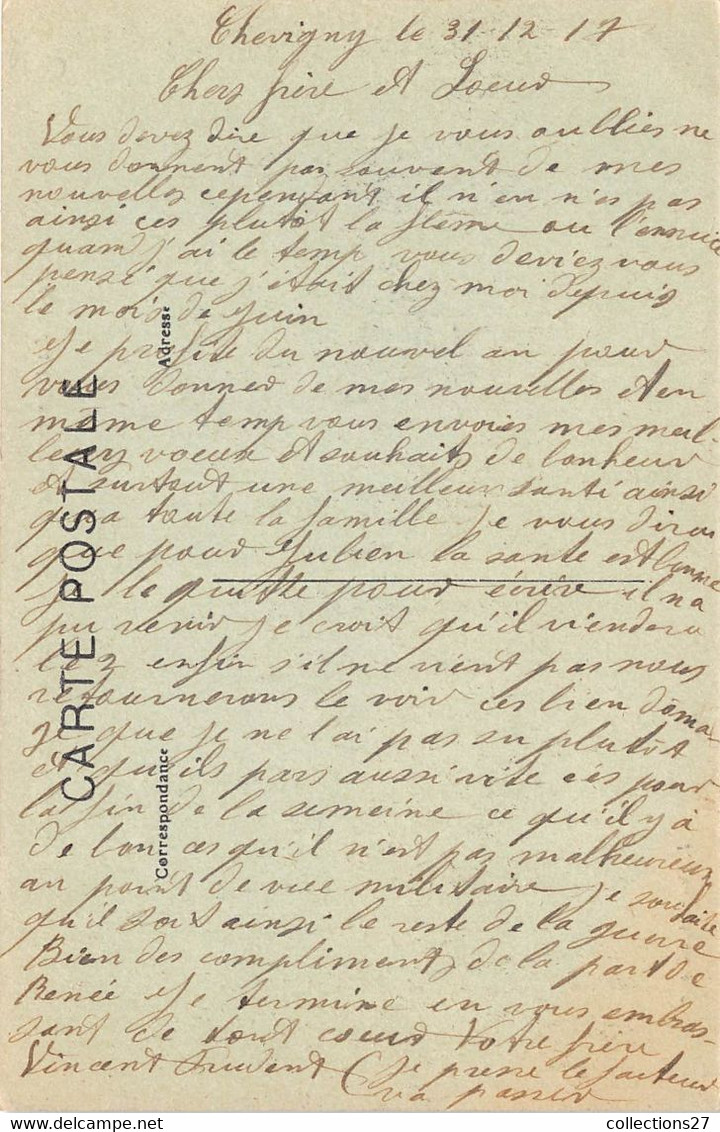 Chevigny le 31-12-17
Chers frère et Soeur
Vous devez dire que je vous oublies ne
vous donnent pas souvent de mes
nouvelles cependant il n'en n'es pas
ainsi ces plutôt la flème ou l'ennuie
quam j'ai le temp vous deviez vous
pensé que j'était chez moi depuis
le mois de Juin
Je profite du nouvel an pour
vous donner de mes nouvelles et en
même temp vous envoies mes meil-
leurs voeux et souhaits de bonheur
et surtout une meilleur santé ainsi
qu'a toute la famille Je vous dirai
que pour Julien la santé est bonne
je le quitte pour écrire il n a
pu venir je croit qu'il viendera
enfin s'il ne vient pas nous
retournerons le voir ces bien doma-
ge que je ne l'ai pas su plutôt
et qu'ils pars aussi vite ces pour
la fin de la semeine ce qu'il y à
de bon ces qu'il n'est pas malheureux
au point de vue militaire je souhaite
qu'il soit ainsi le reste de la guerre
Bien des compliments de la part de
Renée Je termine en vous embras-
sant de tout coeur Votre frère
Vincent Prudent (Je presse le facteur
va passer
CARTE POSTALE
Correspondance
Adresse
collections27